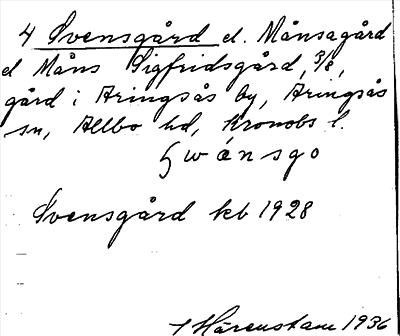 4 Svensgård el. Månsagård
el Måns Sigfridsgård, 3/8,
gård i Aringsås by, Aringsås
sn, Allbo hd, Kronobs l.
swánsgo
Svensgård kb 1928
Härenstam 1936